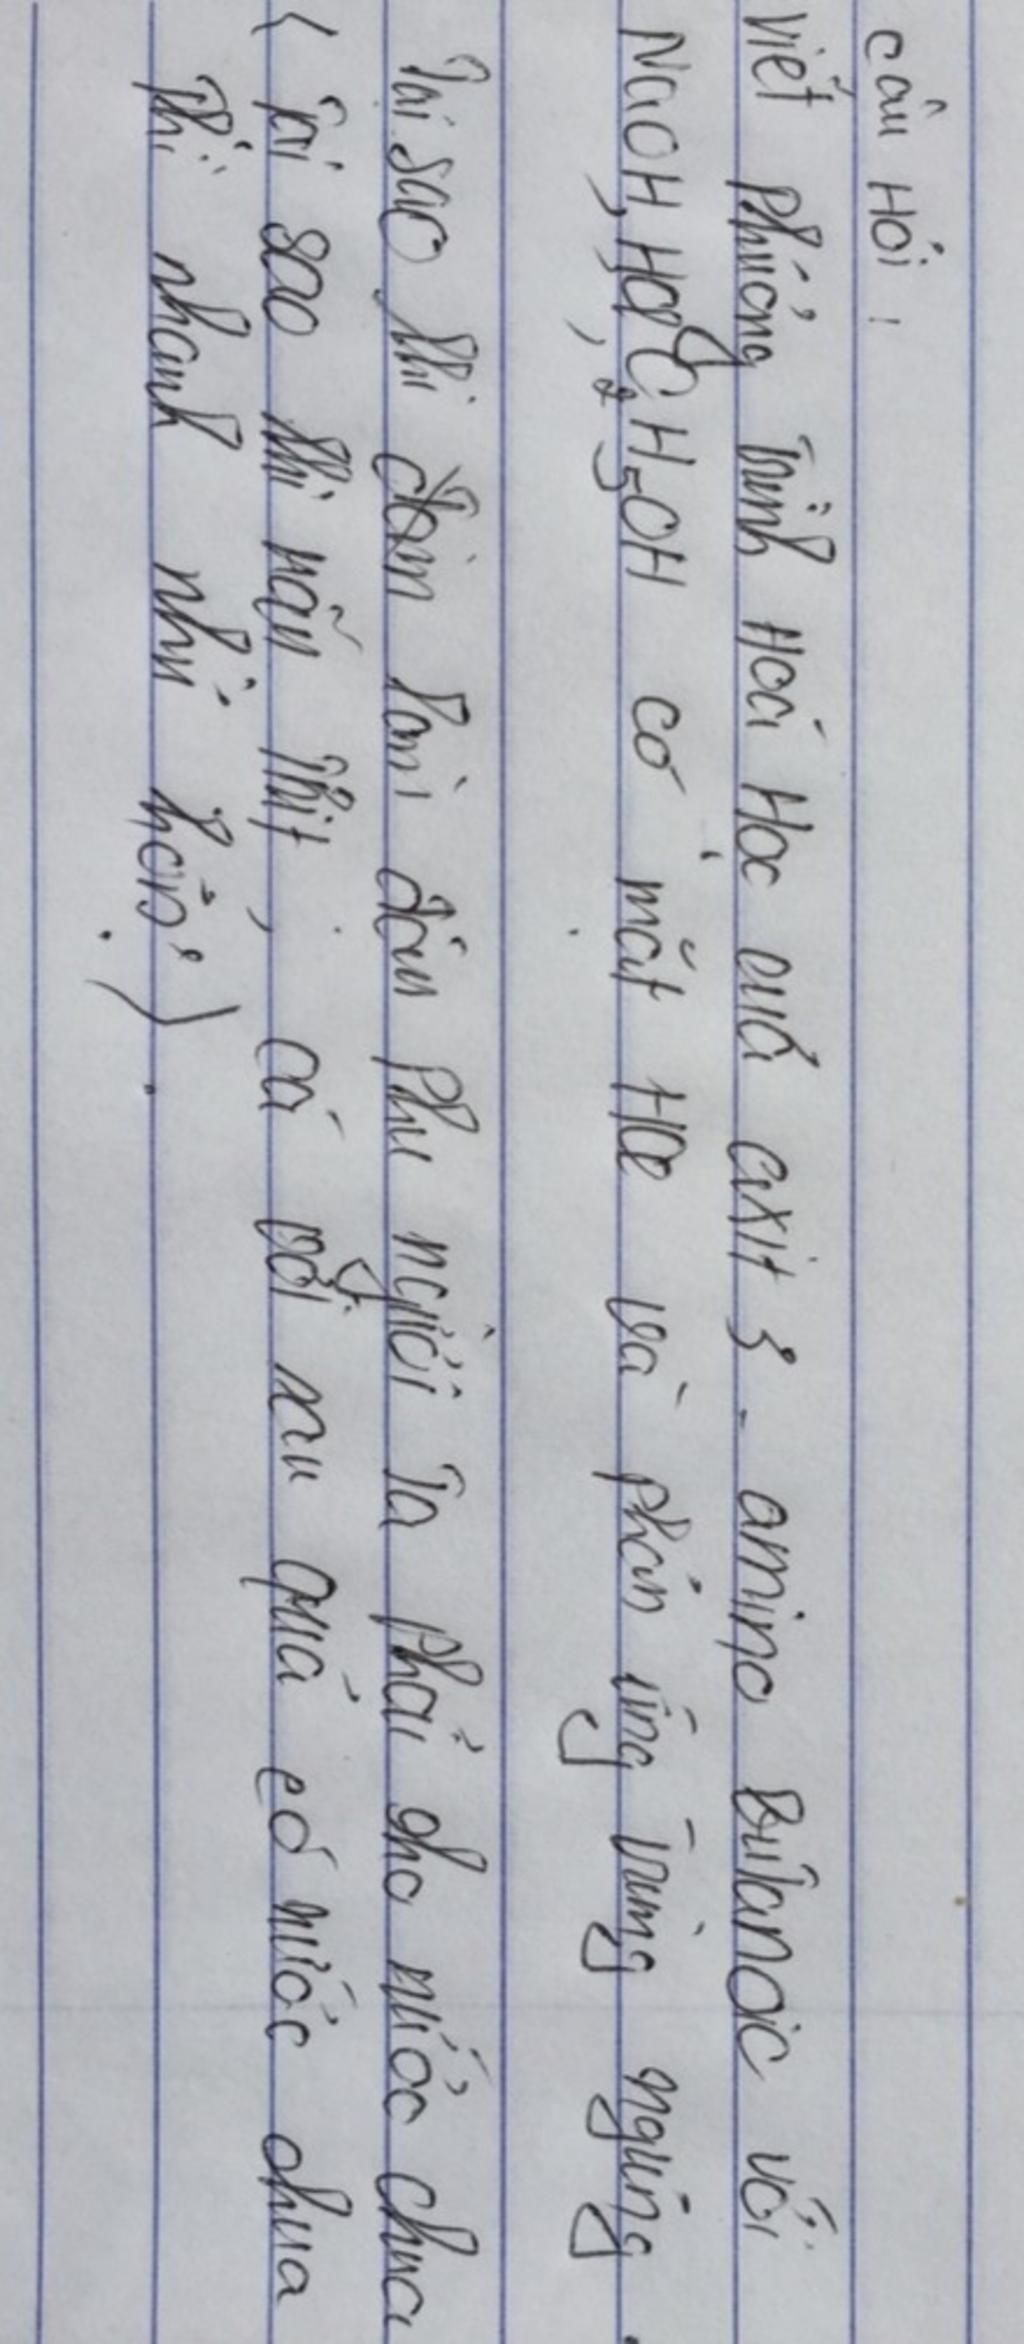 câu Hỏi:
Viết phương trình Hoá Học của axit 3-amino Butanoic với
NaOH, HCl, C₂H₅OH có mặt HCl và phản ứng trùng ngưng.
Tại sao khi làm đậu phụ người ta phải cho nước chua
(Tại sao khi nấu thịt, cá với rau quả có nước chua
thì nhanh nhừ hơn?).